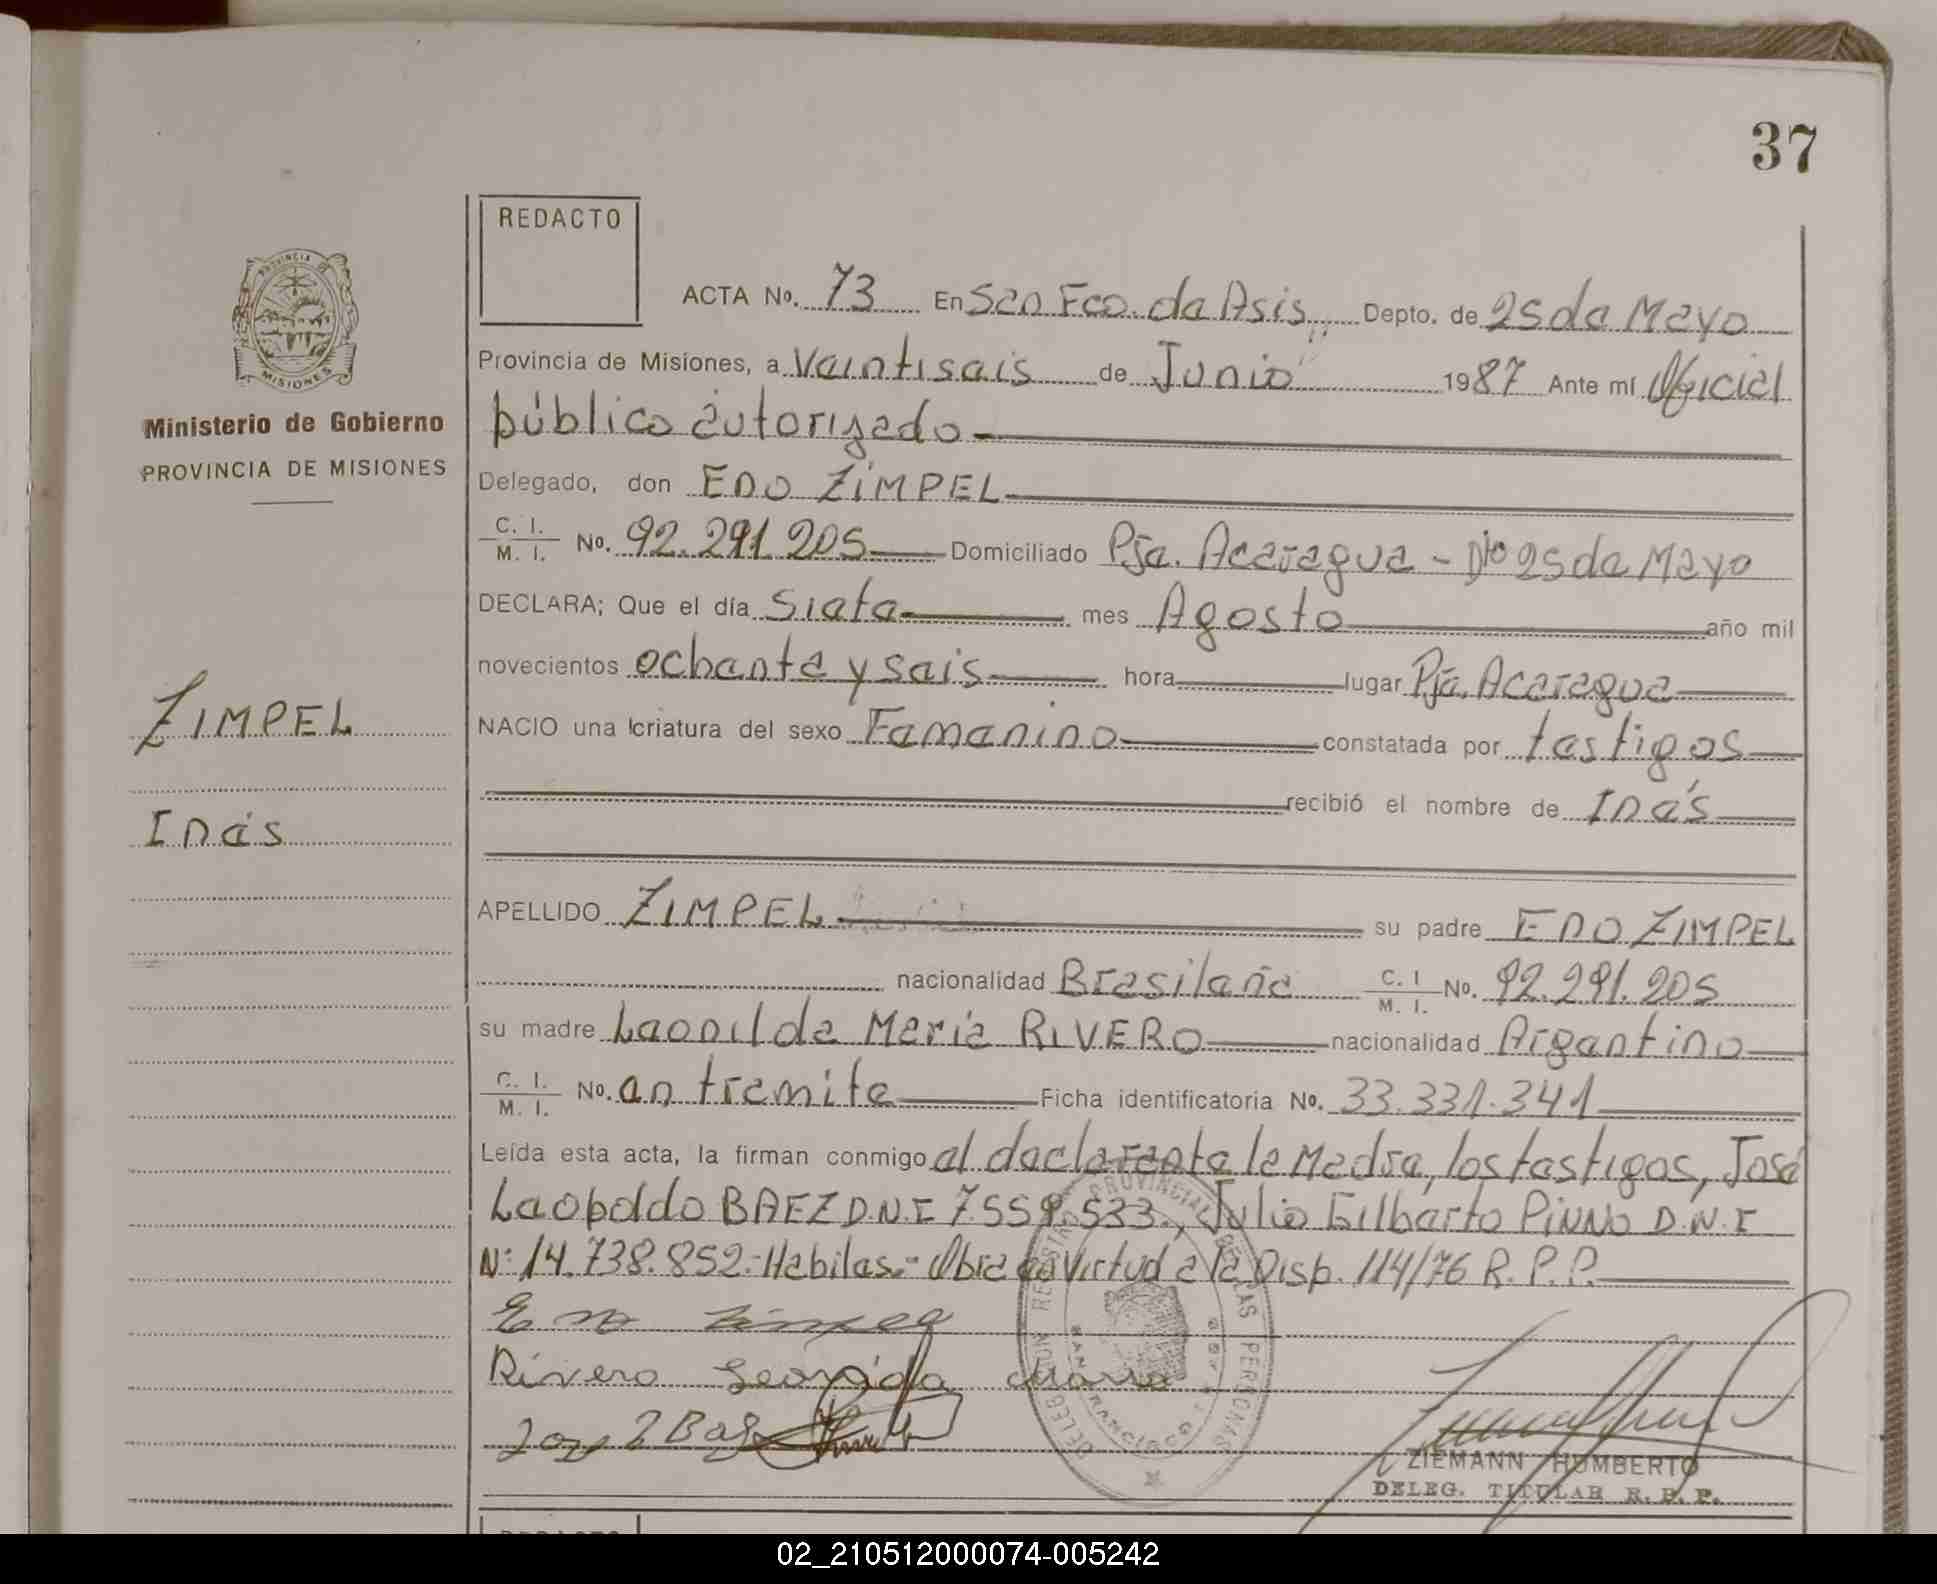 37
REDACTO
ACTA No. 73 En San Fco. de Asis, Depto. de 25 de Mayo
PROVINCIA DE
MISIONES
Provincia de Misiones, a Veintiseis de Junio 1987 Ante mí Oficial
Ministerio de Gobierno
público autorizado
PROVINCIA DE MISIONES
Delegado, don EDO ZIMPEL
C. I.
M. I. No. 92.291.205 Domiciliado Pje. Acaragua - Dto 25 de Mayo
DECLARA; Que el día Siete mes Agosto año mil
novecientos ochenta y seis hora lugar Pje. Acaragua
ZIMPEL
NACIO una criatura del sexo Femenino constatada por testigos
recibió el nombre de Inés
Inés
APELLIDO ZIMPEL su padre EDO ZIMPEL
nacionalidad Brasileña C. I
M. I. No. 92.291.205
su madre Leonilda Maria RIVERO nacionalidad Argentino
C. I.
M. I. No. en tramite Ficha identificatoria No. 33.331.341
Leída esta acta, la firman conmigo el declarante la Madre, los testigos, José
Leopoldo BAEZ D.N.I 7.559.533., Julio Gilberto PINNO D.N.I
Nº 14.738.852.- Habiles.- Obra en Virtud a la Disp. 114/76 R.P.P.
Edo Zimpel
Rivero Leonilda Maria
DELEGACION REGISTRO PROVINCIAL DE LAS PERSONAS
SAN FRANCISCO DE ASIS
ZIEMANN HUMBERTO
DELEG. TITULAR R. P. P.
REDACTO
02_210512000074-005242